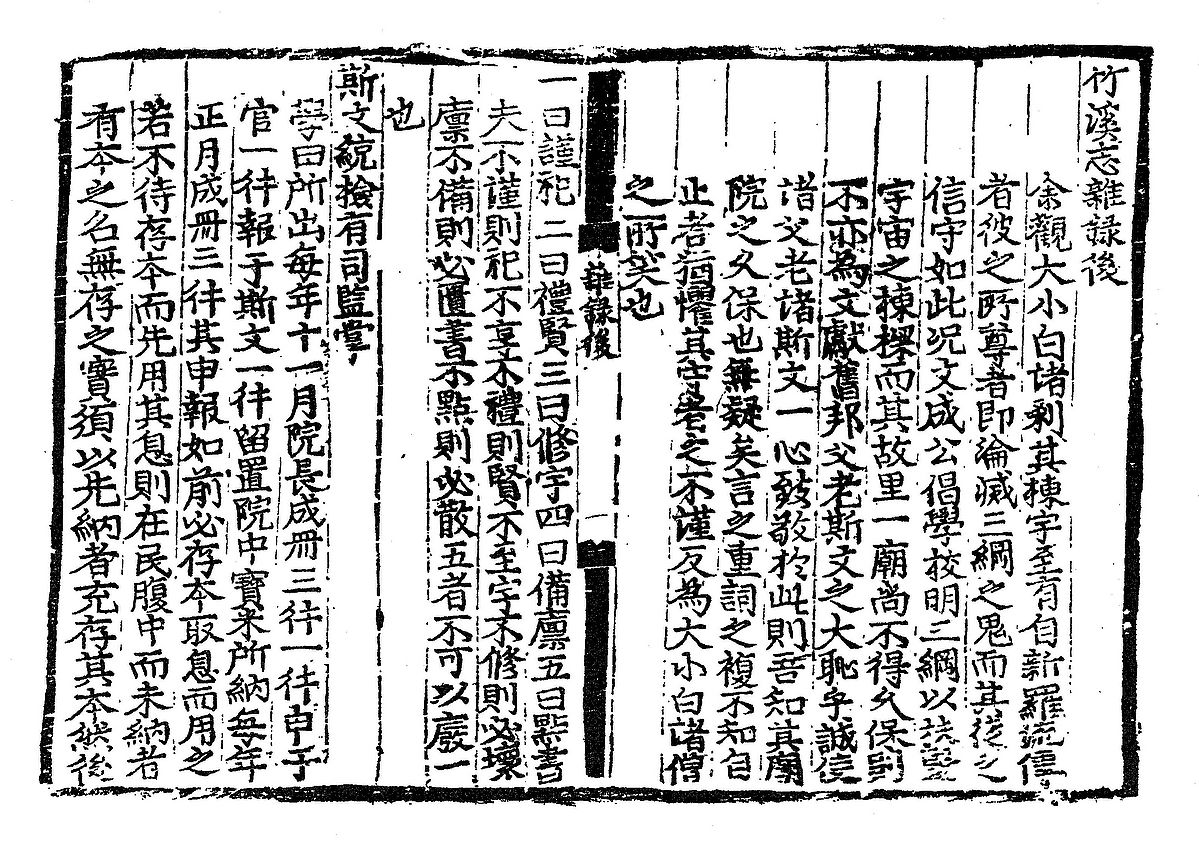 竹溪志雜錄後
余觀大小白诸刹其棟宇至有自新羅流傳
者彼之所尊者即淪滅三綱之鬼而其徒之
信守如此况文成公倡學校明三綱以扶竪
宇宙之棟樑而其故里一廟尚不得久保則
不亦為文獻舊邦父老斯文之大恥乎誠使
諸父老諸斯文一心致敬於此則吾知其廟
院之久保也無疑矣言之重詞之複不知自
止者猶懼其守者之不謹反為大小白諸僧
之所笑也
雜錄後
一
一曰謹祀二曰禮賢三曰修宇四曰備廩五曰點書
夫不謹則祀不享不禮則賢不至宇不修則必壞
廩不備則必匱書不點則必散五者不可以廢一
也
斯文統檢有司監掌
學田所出每年十一月院長成冊三件一件申于
官一件報于斯文一件留置院中寶米所納每年
正月成冊三件其申報如前必存本取息而用之
若不待存本而先用其息則在民腹中而未納者
有本之名無存之實須以先納者充存其本然後